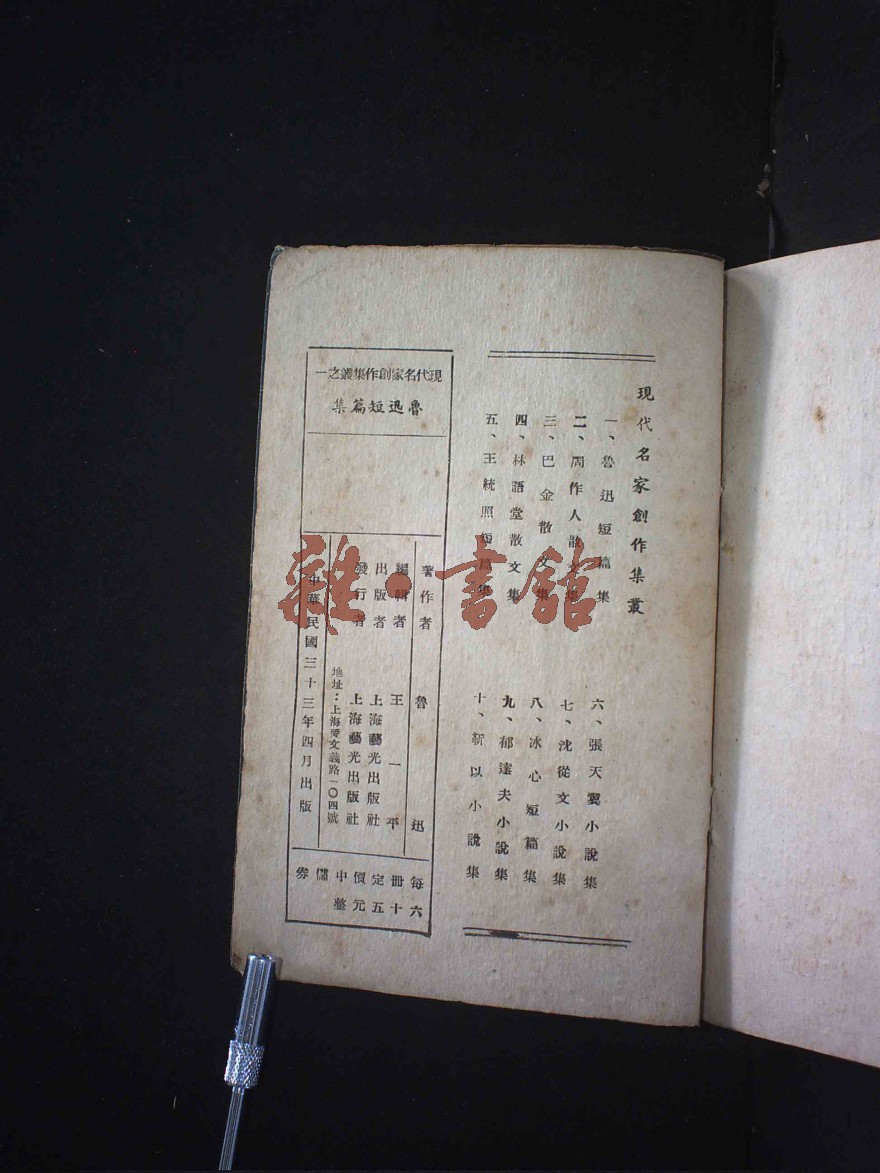 現代名家創作集叢
一、魯迅短篇集
二、周作人散文集
三、巴金散文集
四、林語堂散文集
五、王統照短篇集
六、張天翼小說集
七、沈從文小說集
八、冰心短篇集
九、郁達夫小說集
十、靳以小說集
現代名家創作集叢之一
魯迅短篇集
著作者 魯迅
編輯者 王一平
出版者 上海藝光出版社
發行者 上海藝光出版社
地址：上海愛文義路一〇四號
中華民國三十三年四月出版
每冊定價中儲券
六十五元整
雜·書館